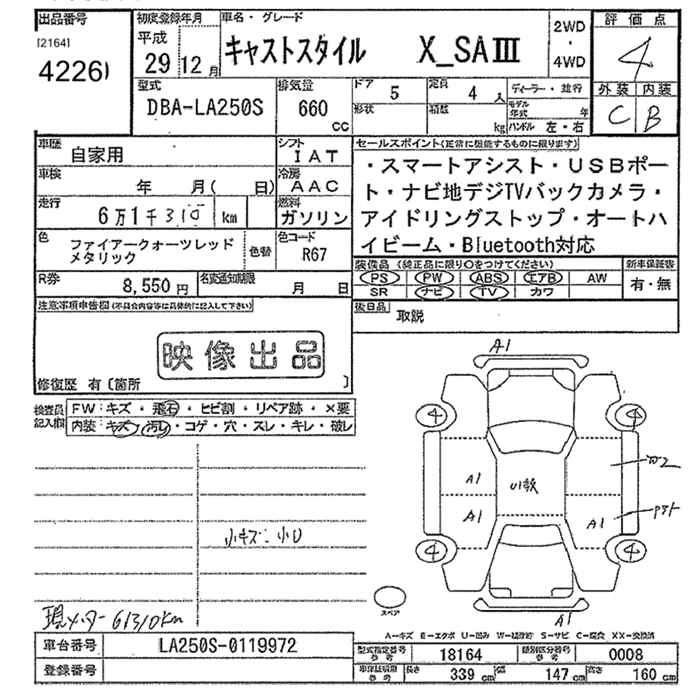 出品番号 初度登録年月 車名・グレード 2WD・4WD 評価点
[2164] 平成
4226 29 12月 キャストスタイル X_SAⅢ 4
型式 排気量 ドア 5 定員 4人 ディーラー・並行 外装 内装
DBA-LA250S 660cc 形状 積数 kg モデル年式 年 C B
ハンドル 左・右
車歴 自家用 シフト IAT セールスポイント(正常に機能するものに限ります)
車検 年 月( 日) 冷房 AAC ・スマートアシスト・USBポー
走行 6万1千310km 燃料 ガソリン ト・ナビ地デジTVバックカメラ・
色 ファイアークォーツレッド 色替 色コード アイドリングストップ・オートハ
メタリック R67 イビーム・Bluetooth対応
装備品 (純正品に限り○をつけてください) 新車保証書
R券 8,550円 名変通知期限 月 日 PS PW ABS エアB AW 有・無
SR ナビ TV カワ
注意事項申告欄(不具合内容等は具体的に記入して下さい) 後日品 取説
映像出品
修復歴 有〔箇所 〕
検査員記入欄 FW:キズ・飛石・ヒビ割・リペア跡・×要
内装:キズ・汚レ・コゲ・穴・スレ・キレ・破レ
A1
4 4
A1
A1 A1
4 4
スペア
A1
小キズ・小U
現メーター 61310km
A-キズ E-エクボ U-凹み W-補修跡 S-サビ C-腐食 XX-交換済
車台番号 LA250S-0119972 型式指定番号 参考 18164 類別区分番号 参考 0008
登録番号 車検証積載 参考 長さ 339cm 幅 147cm 高さ 160cm